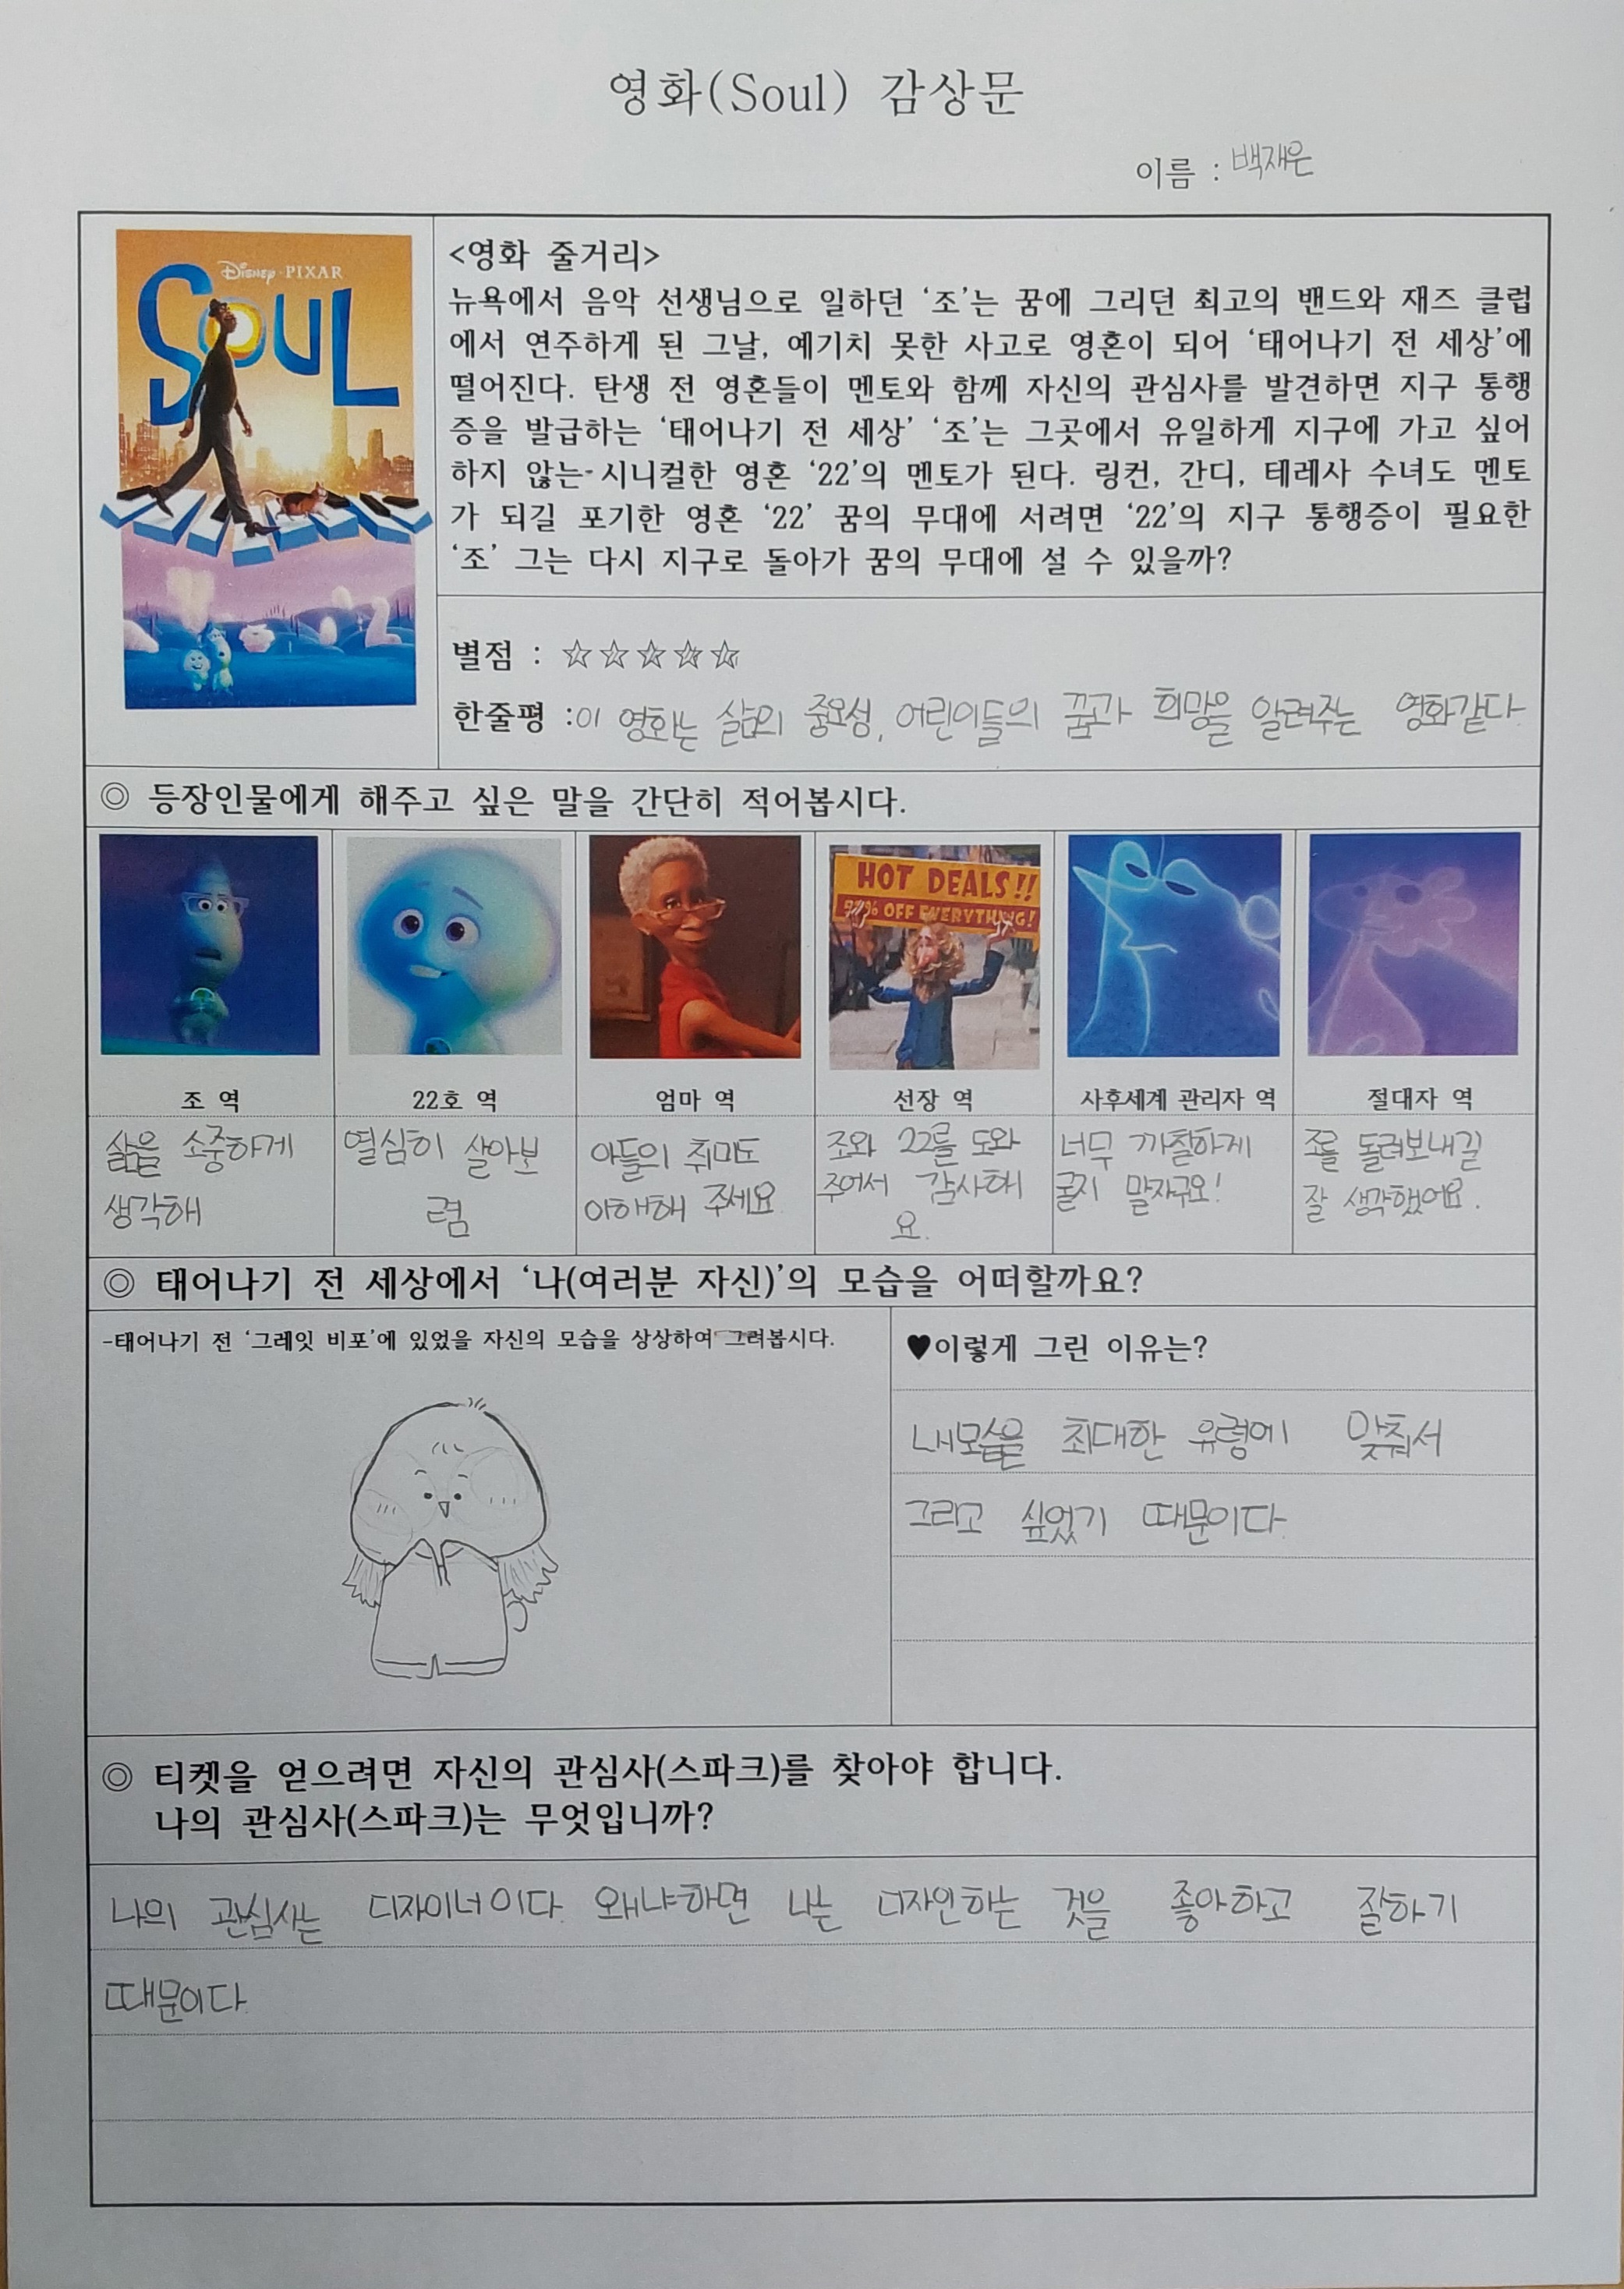 영화(Soul) 감상문
이름 : 백재은
DISNEY · PIXAR
SOUL
<영화 줄거리>
뉴욕에서 음악 선생님으로 일하던 ‘조’는 꿈에 그리던 최고의 밴드와 재즈 클럽
에서 연주하게 된 그날, 예기치 못한 사고로 영혼이 되어 ‘태어나기 전 세상’에
떨어진다. 탄생 전 영혼들이 멘토와 함께 자신의 관심사를 발견하면 지구 통행
증을 발급하는 ‘태어나기 전 세상’ ‘조’는 그곳에서 유일하게 지구에 가고 싶어
하지 않는 시니컬한 영혼 ‘22’의 멘토가 된다. 링컨, 간디, 테레사 수녀도 멘토
가 되길 포기한 영혼 ‘22’ 꿈의 무대에 서려면 ‘22’의 지구 통행증이 필요한
‘조’ 그는 다시 지구로 돌아가 꿈의 무대에 설 수 있을까?
별점 : ☆☆☆☆☆
한줄평 :이 영화는 삶의 중요성, 어린이들의 꿈과 희망을 알려주는 영화같다
◎ 등장인물에게 해주고 싶은 말을 간단히 적어봅시다.
HOT DEALS!!
% OFF EVERYTHING!
조 역 22호 역 엄마 역 선장 역 사후세계 관리자 역 절대자 역
삶을 소중하게
생각해
열심히 살아보
렴
아들의 취미도
이해해 주세요
조와 22를 도와
주어서 감사해
요.
너무 까칠하게
굴지 말자구요!
조를 돌려보내길
잘 생각했어요.
◎ 태어나기 전 세상에서 ‘나(여러분 자신)’의 모습을 어떠할까요?
-태어나기 전 ‘그레잇 비포’에 있었을 자신의 모습을 상상하여 그려봅시다.
♥이렇게 그린 이유는?
내모습을 최대한 유령에 맞춰서
그리고 싶었기 때문이다
◎ 티켓을 얻으려면 자신의 관심사(스파크)를 찾아야 합니다.
나의 관심사(스파크)는 무엇입니까?
나의 관심사는 디자이너이다. 왜냐하면 나는 디자인하는 것을 좋아하고 잘하기
때문이다.